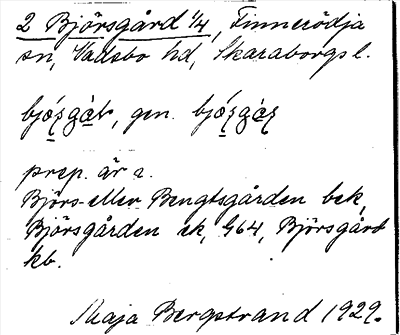 2 Björsgård 1/4, Finnerödja
sn, Vadsbo hd, Skaraborgs l.
bjǫ́ʂgɑ̀ɖ, gen. bjǫ́ʂgɑ̀ʂ
prep. är a.
Björs- eller Bengtsgården bek,
Björsgården ek, G64, Björsgård
kb.
Maja Bergstrand 1929.